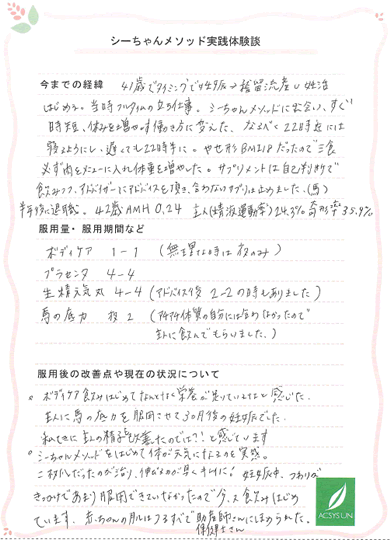 シーちゃんメソッド実践体験談
今までの経緯 41歳でタイミングで妊娠→稽留流産し妊活
はじめる。当時フルタイムの立ち仕事。シーちゃんメソッドに出会い、すぐ
時短、休みを増やす働き方に変えた。なるべく22時頃には
寝るようにし、遅くても22時半に。やせ形BMI18だったので三食
必ず肉をメニューに入れ体重を増やした。サプリメントは自己判断で
飲みつつ、アドバイザーにアドバイスを頂き、合わないサプリは止めました。(馬)
半年後に退職。42歳AMH 0.24 主人(精液運動率)24.3% 奇形率35.9%
服用量・服用期間など
ボディケア 1-1 (無理な時は夜のみ)
プラセンタ 4-4
生精元気丸 4-4 (アドバイス後2-2の時もありました)
馬の底力 夜2 (体質の自分には合わなかったので
主人に飲んでもらいました。)
服用後の改善点や現在の状況について
○ ボディケア飲みはじめてなんとなく栄養が足っていると感じた。
主人に馬の底力を服用させて3ヵ月後の妊娠でした。
私的に主人の精子改善したのでは!?と感じています
○ シーちゃんメソッドをはじめて体が元気になるのを実感。
二枚爪だったのが治り、伸びるのが早くキレイに! 妊娠中、つわりが
きっかけであまり服用できていなかったので今、又飲みはじめ
ています。赤ちゃんの肌はつるすべで助産師さんにほめられた。
保健士さん
ACSYSUN